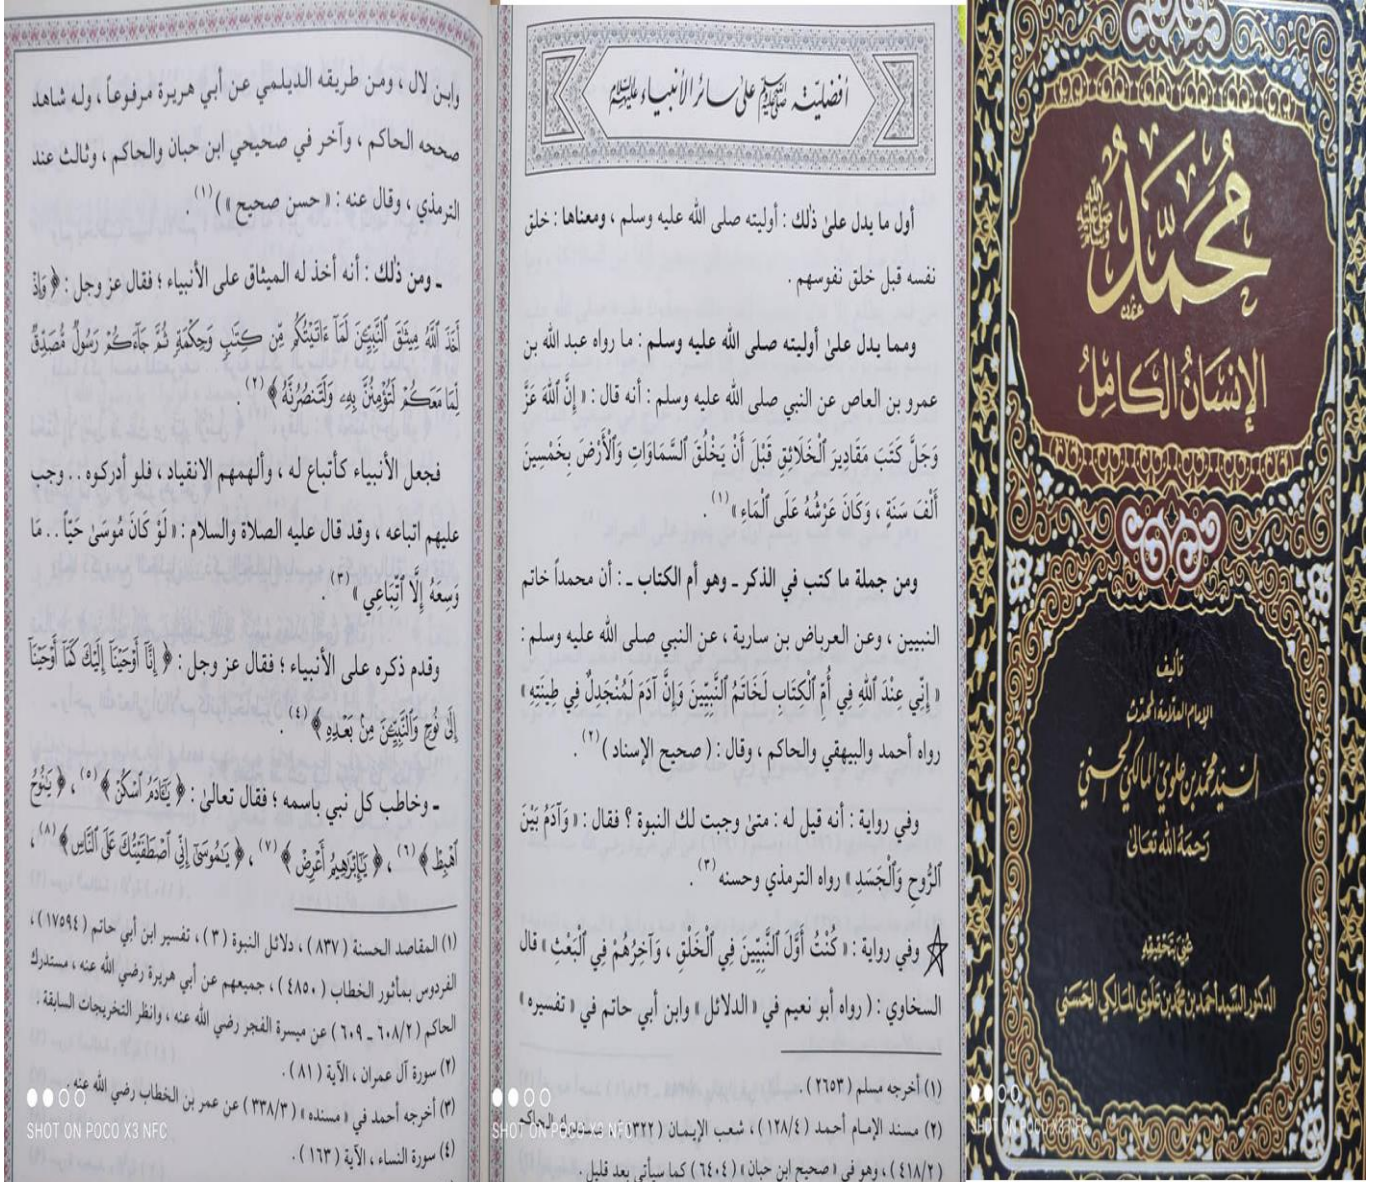 محمد ﷺ
الإنسان الكامل
تأليف
الإمام العلامة المحدث
السيد محمد بن علوي المالكي الحسني
رحمه الله تعالى
عني بتحقيقه
الدكتور السيد أحمد بن محمد بن علوي المالكي الحسني
أفضليته ﷺ على سائر الأنبياء عليهم السلام
أول ما يدل علىٰ ذلك : أوليته صلى الله عليه وسلم ، ومعناها : خلق
نفسه قبل خلق نفوسهم .
ومما يدل علىٰ أوليته صلى الله عليه وسلم : ما رواه عبد الله بن
عمرو بن العاص عن النبي صلى الله عليه وسلم : أنه قال : « إِنَّ ٱللهَ عَزَّ
وَجَلَّ كَتَبَ مَقَادِيرَ ٱلْخَلَائِقِ قَبْلَ أَنْ يَخْلُقَ ٱلسَّمَاوَاتِ وَٱلْأَرْضَ بِخَمْسِينَ
أَلْفَ سَنَةٍ ، وَكَانَ عَرْشُهُ عَلَى ٱلْمَاءِ »(١) .
ومن جملة ما كتب في الذكر ـ وهو أم الكتاب ـ : أن محمداً خاتم
النبيين ، وعن العرباض بن سارية ، عن النبي صلى الله عليه وسلم :
« إِنِّي عِنْدَ ٱللهِ فِي أُمِّ ٱلْكِتَابِ لَخَاتَمُ ٱلنَّبِيِّينَ وَإِنَّ آدَمَ لَمُنْجَدِلٌ فِي طِينَتِهِ »
رواه أحمد والبيهقي والحاكم ، وقال : ( صحيح الإسناد )(٢) .
وفي رواية : أنه قيل له : متىٰ وجبت لك النبوة ؟ فقال : « وَآدَمُ بَيْنَ
ٱلرُّوحِ وَٱلْجَسَدِ » رواه الترمذي وحسنه(٣) .
وفي رواية : « كُنْتُ أَوَّلَ ٱلنَّبِيِّينَ فِي ٱلْخَلْقِ ، وَآخِرُهُمْ فِي ٱلْبَعْثِ » قال
السخاوي : ( رواه أبو نعيم في « الدلائل » وابن أبي حاتم في « تفسيره »
(١) أخرجه مسلم ( ٢٦٥٣ ) .
(٢) مسند الإمام أحمد ( ١٢٨/٤ ) ، شعب الإيمان ( ١٣٢٢ ) ، مستدرك الحاكم
( ٤١٨/٢ ) ، وهو في « صحيح ابن حبان » ( ٦٤٠٤ ) كما سيأتي بعد قليل .
SHOT ON POCO X3 NFC
وابن لال ، ومن طريقه الديلمي عن أبي هريرة مرفوعاً ، وله شاهد
صححه الحاكم ، وآخر في صحيحي ابن حبان والحاكم ، وثالث عند
الترمذي ، وقال عنه : « حسن صحيح » )(١) .
ـ ومن ذٰلك : أنه أخذ له الميثاق على الأنبياء ؛ فقال عز وجل : ﴿ وَإِذْ
أَخَذَ ٱللَّهُ مِيثَٰقَ ٱلنَّبِيِّـۧنَ لَمَآ ءَاتَيْتُكُم مِّن كِتَٰبٍ وَحِكْمَةٍ ثُمَّ جَآءَكُمْ رَسُولٌ مُّصَدِّقٌ
لِّمَا مَعَكُمْ لَتُؤْمِنُنَّ بِهِۦ وَلَتَنصُرُنَّهُۥ ﴾(٢)
فجعل الأنبياء كأتباع له ، وألهمهم الانقياد ، فلو أدركوه . . وجب
عليهم اتباعه ، وقد قال عليه الصلاة والسلام : « لَوْ كَانَ مُوسَىٰ حَيّاً . . مَا
وَسِعَهُ إِلَّا ٱتِّبَاعِي »(٣)
وقدم ذكره على الأنبياء ؛ فقال عز وجل : ﴿ إِنَّآ أَوْحَيْنَآ إِلَيْكَ كَمَآ أَوْحَيْنَآ
إِلَىٰ نُوحٍ وَٱلنَّبِيِّـۧنَ مِنۢ بَعْدِهِۦ ﴾(٤) .
ـ وخاطب كل نبي باسمه ؛ فقال تعالىٰ : ﴿ يَـَٰٓادَمُ ٱسْكُنْ ﴾(٥) ، ﴿ يَٰنُوحُ
ٱهْبِطْ ﴾(٦) ، ﴿ يَٰٓإِبْرَٰهِيمُ أَعْرِضْ ﴾(٧) ، ﴿ يَٰمُوسَىٰٓ إِنِّى ٱصْطَفَيْتُكَ عَلَى ٱلنَّاسِ ﴾(٨) ،
(١) المقاصد الحسنة ( ٨٣٧ ) ، دلائل النبوة ( ٣ ) ، تفسير ابن أبي حاتم ( ١٧٥٩٤ ) ،
الفردوس بمأثور الخطاب ( ٤٨٥٠ ) ، جميعهم عن أبي هريرة رضي الله عنه ، مستدرك
الحاكم ( ٦٠٨/٢ ـ ٦٠٩ ) عن ميسرة الفجر رضي الله عنه ، وانظر التخريجات السابقة .
(٢) سورة آل عمران ، الآية ( ٨١ ) .
(٣) أخرجه أحمد في « مسنده » ( ٣٣٨/٣ ) عن عمر بن الخطاب رضي الله عنه .
(٤) سورة النساء ، الآية ( ١٦٣ ) .
SHOT ON POCO X3 NFC
SHOT ON POCO X3 NFC